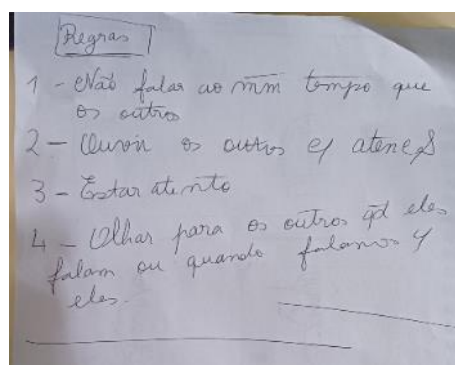 Regras
1 - Não falar ao mm tempo que
os outros
2 - Ouvir os outros c/ atenç
3 - Estar atento
4 - Olhar para os outros qd eles
falam ou quando falamos c/
eles.